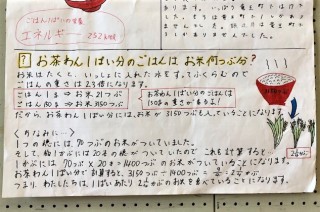 ごはん1ぱいの栄養
エネルギー 252kcal
? お茶わん1ぱい分のごはんは お米何つぶ分?
お米はたくと、いっしょに入れた水をすってふくらむので
ごはんの重さは2.3倍になります。
ごはん1g ⇒ お米21つぶ
ごはん150g ⇒ お米3150つぶ
お茶わん1ぱい分のごはんは
150gの重さがあるよ!
だから、お茶わん1ぱい分には、お米が3150つぶも入っていることになります。
<ちなみに…>
1つの穂には、70つぶのお米がついていました。
そして、稲1かぶには20本の穂がついていたので これも計算すると…
1かぶには、70つぶ×20本=1400つぶのお米がついていることになります。
お茶わん1ぱい分で計算すると、3150つぶ÷1400つぶ=
つまり、わたしたちは、1ぱいあたり2¼かぶのお米を食べていることになります。
2¼かぶ